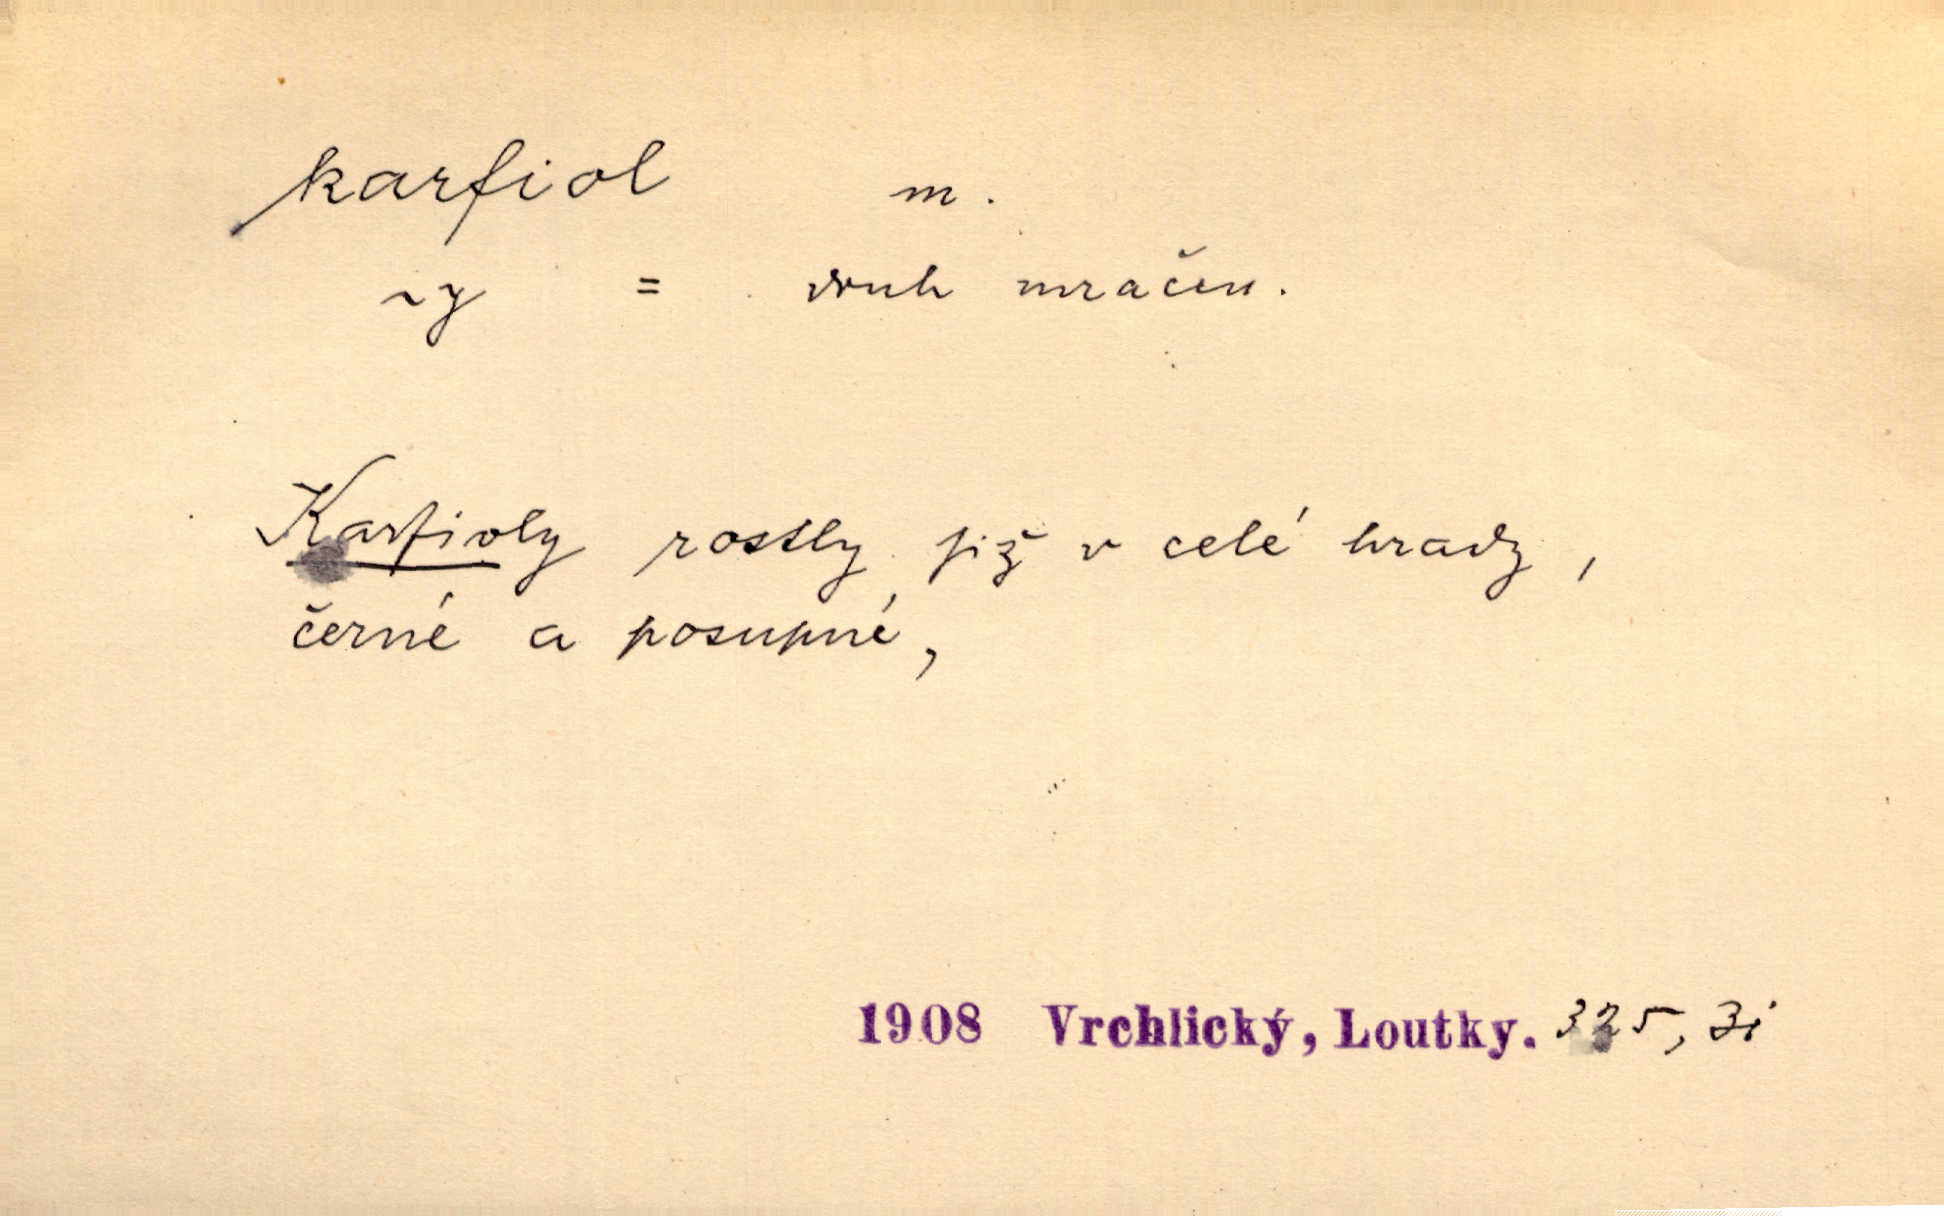 karfiol m.
~y = druh mračen.
Karfioly rostly již v celé hrady,
černé a posupné,
1908 Vrchlický, Loutky. 325, Zi